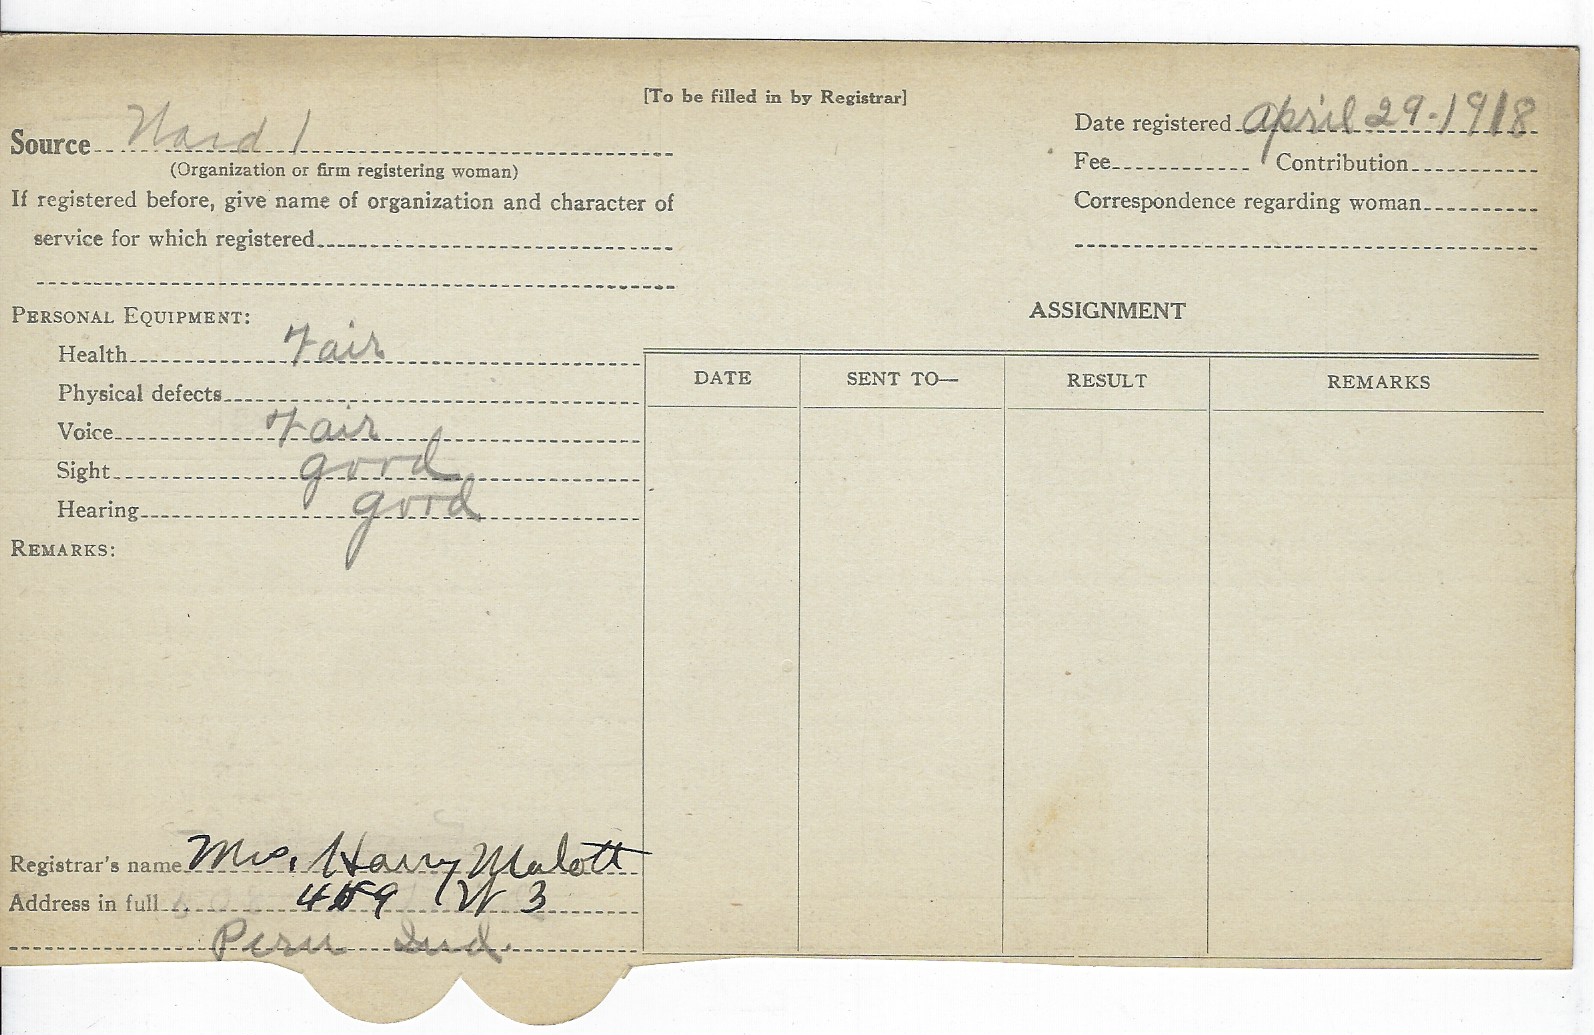 [To be filled in by Registrar]
Source Ward 1
(Organization or firm registering woman)
If registered before, give name of organization and character of
service for which registered
Date registered April 29-1918
Fee Contribution
Correspondence regarding woman
PERSONAL EQUIPMENT:
Health Fair
Physical defects
Voice Fair
Sight good
Hearing good
REMARKS:
ASSIGNMENT
DATE SENT TO— RESULT REMARKS
Registrar's name Mrs. Harry Malott
Address in full W 3
Peru Ind.